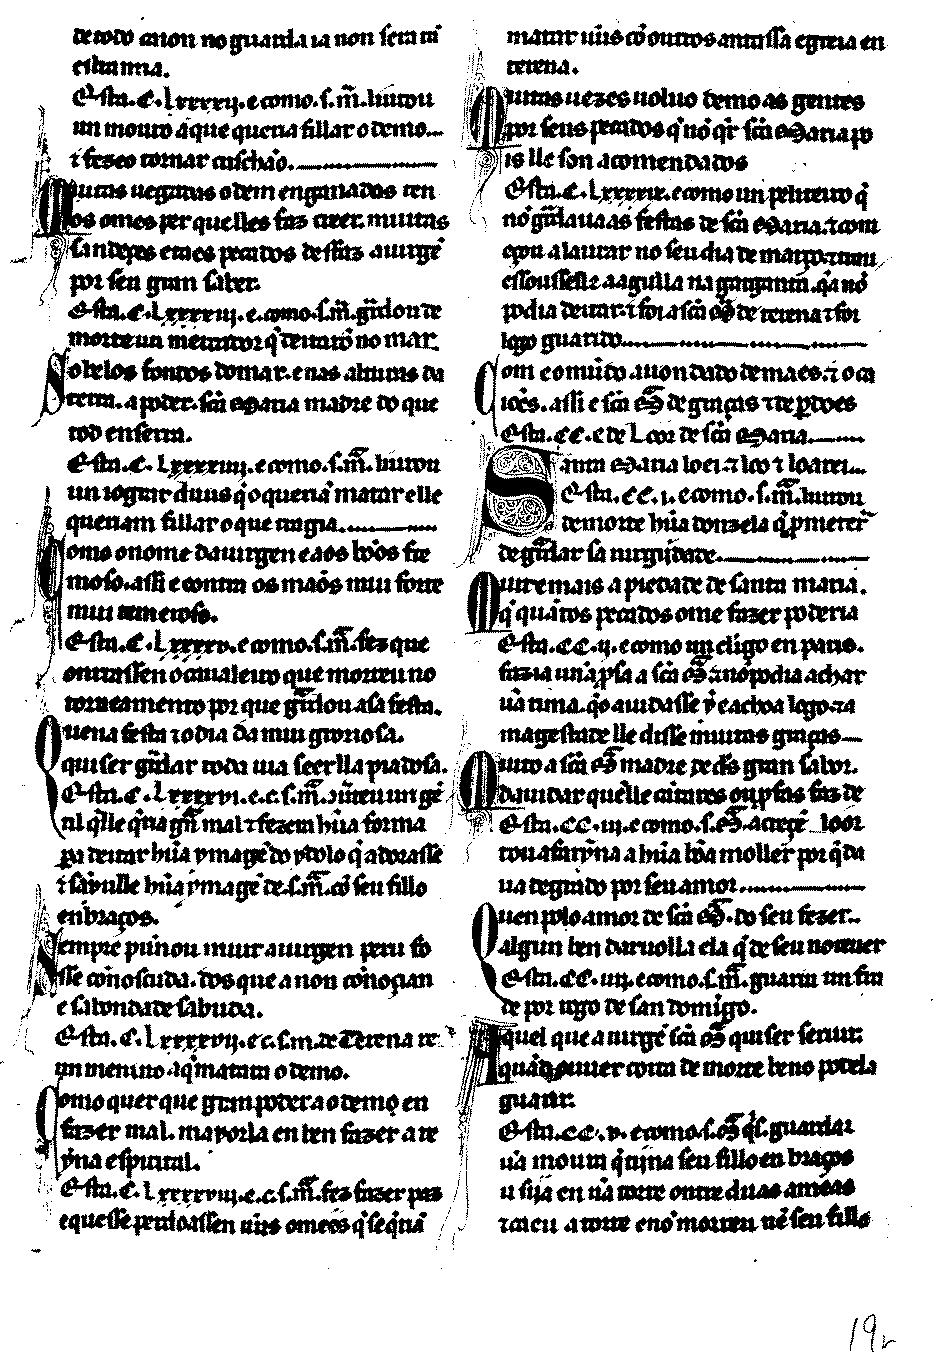 de todo a non no guarda ia non sera tã
estranna.
Esta. C. Lxxxxij. e como. s. m̃. liurou
un mouro aque queria fillar o demo
⁊ fezeo tornar crischão.
Muitas uegadas o dem enganados ten
os omes per que lles faz creer. muitas
sandeces e taes pecados desfaz a uirgẽ
por seu gran saber.
Esta. C. Lxxxxiij. e. como. s. m̃. gũdou de
morte un mercador q̃ deitarõ no mar.
Sobelos fondos do mar. e nas alturas da
terra. a poder. scã Maria madre do que
tod enserra.
Esta. C. Lxxxxiiij. e como. s. m̃. liurou
un iograr duus q̃ o querian matar e lle
querian fillar o que tragia.
Como o nome da uirgen e aos bõos fre
moso. assi e contra os maos mui forte
mui temeroso.
Esta. C. Lxxxxv. e como. s. m̃. fez que
onrrassen o caualeiro que morreu no
torneamento por que gũdou a sa festa.
Quena festa ⁊ o dia da mui groriosa.
quiser gũdar toda uia seerlla piadosa.
Esta. C. Lxxxxvi. e. c. s. m̃. ...u un gẽ
til q̃ lle q̃ria gñ mal ⁊ fezera hũa forma
pa deitar hũa ymagẽ do ydolo q̃ adorasse
⁊ sayulle hũa ymagẽ de. s. m̃. cõ seu fillo
en braços.
Sempre punou muit a uirgen peru fo
sse cõnosçuda. dos que a non cõnoçian
e sa bondade sabuda.
Esta. C. Lxxxxvij. e c. s. m̃. de Terena re
un menino. a q̃ matara o demo.
Como quer que gram poder a o demo en
fazer mal. mayor la en ben fazer a re
yna espirital.
Esta. C. Lxxxxviij. e. c. s. m̃. fez fazer paz
e que sse perdoassen uũs omees q̃ se q̃riã
matar uũs cõ outros ant a ssa egreia en
terena.
Muitas uezes uoluo demo as gentes
por seus pecados q̃ nõ q̃r scã Maria po
is lle son acomendados
Esta. C. Lxxxxix. e como un peliteiro q̃
nõ gũdaua as festas de scã Maria. ⁊ com
eçou a laurar no seu dia de março. ...
essousselle a agulla na garganta. q̃ a nõ
podia deitar. ⁊ foi a scã M̃ de terena ⁊ foi
logo guarido.
Com e o mũdo auondado de maes. ⁊ o ca
iões. assi e scã M̃ de graças ⁊ de pdões
Esta. CC. e de Loor de scã Maria.
Santa Maria loei. ⁊ loo ⁊ loarei.
Esta. CC. i. e como. s. m̃. liurou
de morte hũa donzela q̃ pmeterã
de gũdar sa uirgijdade.
Muit e mais a piedade de santa maria.
q̃ quãtos pecados ome fazer poderia
Esta. CC. ij. e como un cligo en paris.
fazia un a psa a scã M̃. ⁊ nõ podia achar
ũa rima. q̃ o auidasse y e achoa logo. ⁊ a
magestade lle disse muitas graças
Muito a scã M̃ madre de ds gran sabor.
daiudar quelle cãtares ou psas faz de
Esta. CC. iij. e como. s. M̃. acreçẽ loor
tou a fariỹna a hũa bõa moller por q̃ da
ua degrado por seu amor.
Quen polo amor de scã M̃. do seu fezer.
algun ben daruolla ela q̃ de seu non ouer
Esta. CC. iiij. e como. s. m̃. guariu un frai
de por rogo de san domigo.
Aquel que a uirgẽ scã M̃ quiser seruir.
quãdo ouuer coita de morte beno podela
guarir.
Esta. CC. v. e como. s. M̃ qs. guardar
ũa moura q̃ tijna seu fillo en braços
u sija en ũa torre ontre duas ameas
⁊ caeu a torre e nõ morreu nẽ seu fillo
19r